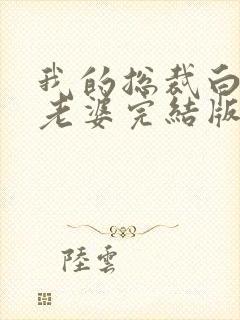 我的総裁白
老婆完結版
陸雲